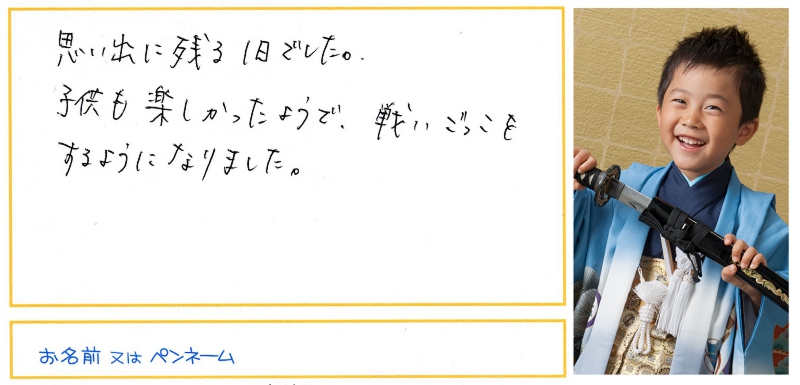 思い出に残る1日でした。
子供も楽しかったようで、戦いごっこを
するようになりました。
お名前 又は ペンネーム